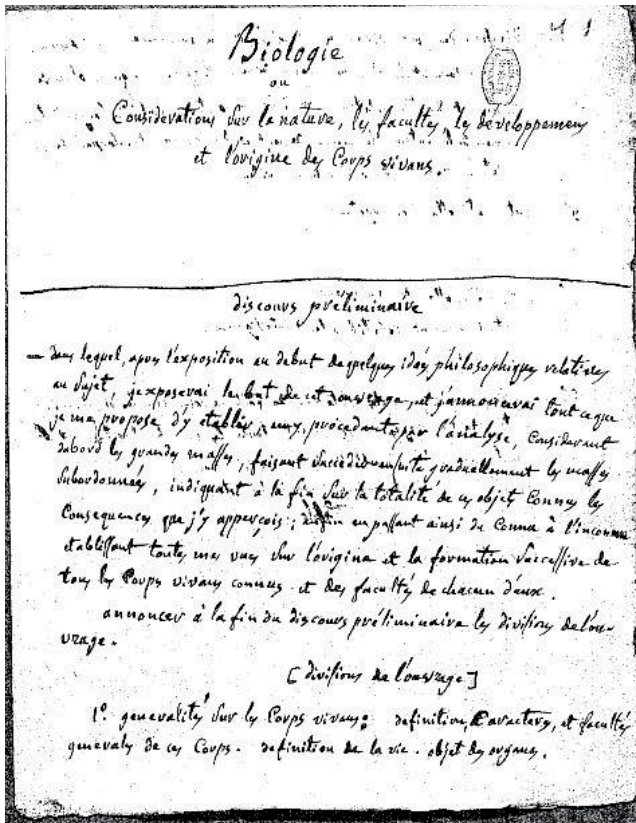 Biologie
ou
Considérations sur la nature, les facultés, les développemens
et l'origine des Corps vivans.
discours préliminaire
— dans lequel, apres l'exposition au debut de quelques idées philosophiques relatives
au sujet, j'exposerai le but de cet ouvrage, et j'annoncerai tout ce que
je me propose d'y etablir, en y procedant par l'analyse, considerant
dabord les grandes masses, faisant succéder ensuite graduellement les masses
subordonnées, indiquant à la fin sur la totalité de ces objets connus les
Consequences que j'y apperçois; enfin en passant ainsi du Connu à l'inconnu
etablissant toutes mes vues sur l'origine et la formation successive de
tous les Corps vivans connus et des facultés de chacun d'eux.
annoncer à la fin du discours préliminaire les divisions de l'ou-
vrage.
[divisions de l'ouvrage]
1º. generalités sur les Corps vivans: definition, Caracteres, et facultés
generales de ces Corps. definition de la vie. objet des organes.